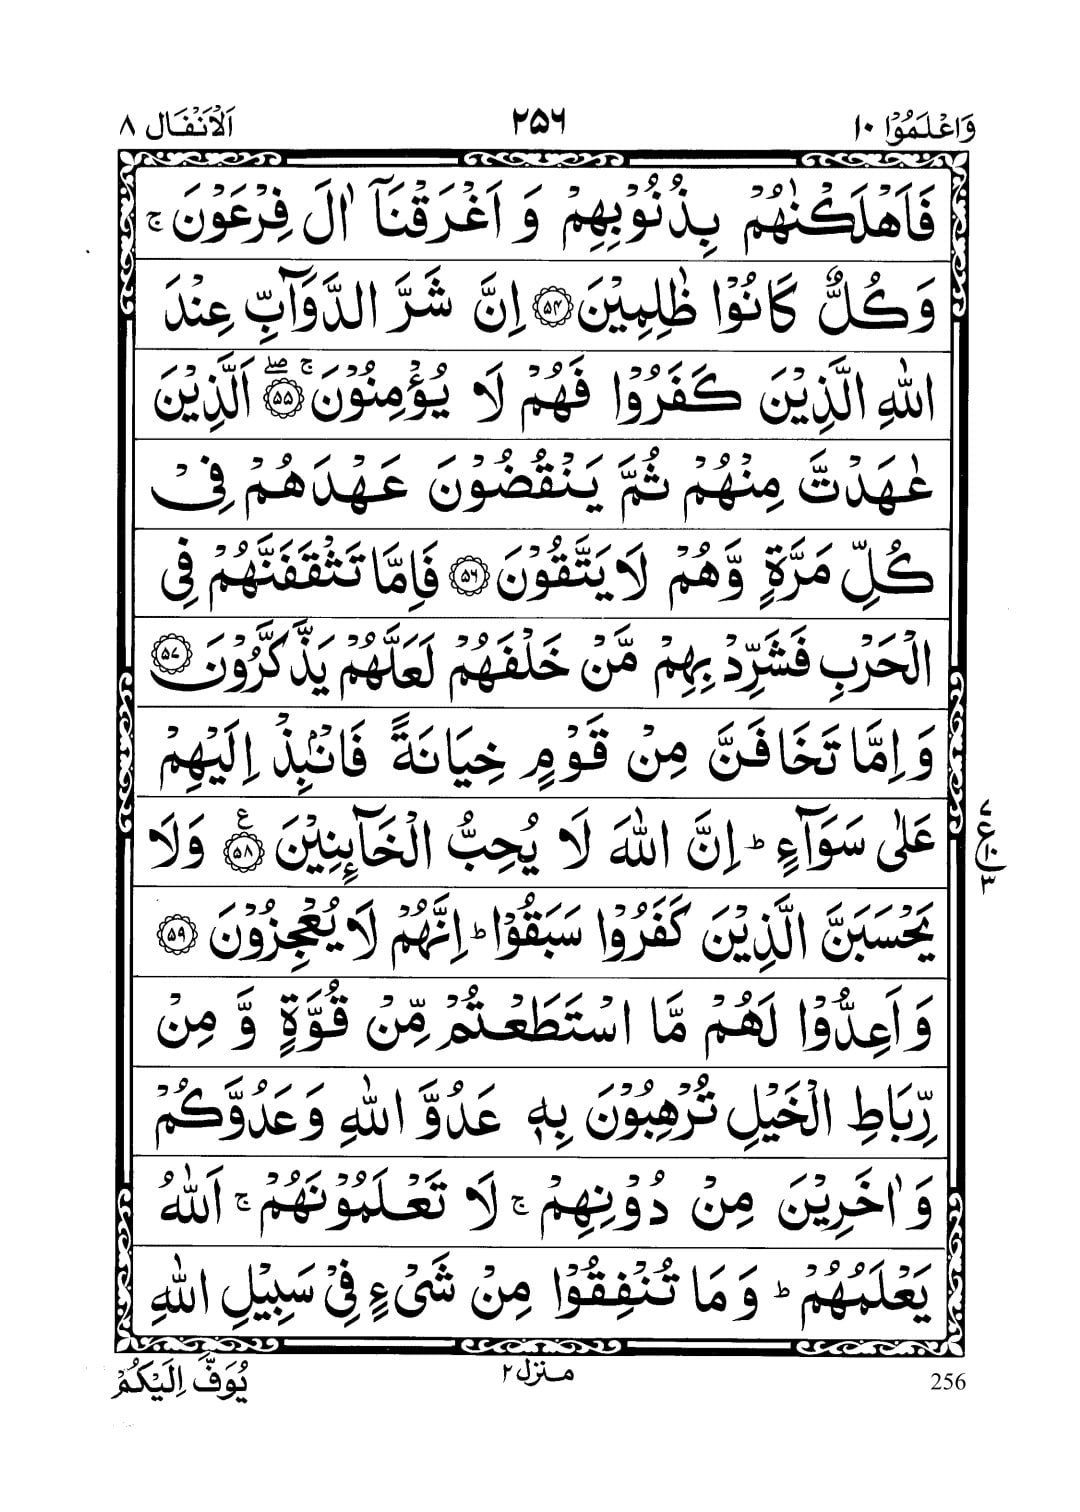 اَلْاَنْفَال ٨ ٢٥٦ وَاعْلَمُوْۤا ١٠
فَاَهْلَكْنٰهُمْ بِذُنُوْبِهِمْ وَ اَغْرَقْنَاۤ اٰلَ فِرْعَوْنَ ۚ
وَ كُلٌّ كَانُوْا ظٰلِمِيْنَ ۝۵۴ اِنَّ شَرَّ الدَّوَآبِّ عِنْدَ
اللّٰهِ الَّذِيْنَ كَفَرُوْا فَهُمْ لَا يُؤْمِنُوْنَ ۚۖ ۝۵۵ اَلَّذِيْنَ
عٰهَدْتَّ مِنْهُمْ ثُمَّ يَنْقُضُوْنَ عَهْدَهُمْ فِيْ
كُلِّ مَرَّةٍ وَّهُمْ لَا يَتَّقُوْنَ ۝۵۶ فَاِمَّا تَثْقَفَنَّهُمْ فِي
الْحَرْبِ فَشَرِّدْ بِهِمْ مَّنْ خَلْفَهُمْ لَعَلَّهُمْ يَذَّكَّرُوْنَ ۝۵۷
وَاِمَّا تَخَافَنَّ مِنْ قَوْمٍ خِيَانَةً فَانْۢبِذْ اِلَيْهِمْ
عَلٰى سَوَآءٍ ؕ اِنَّ اللّٰهَ لَا يُحِبُّ الْخَآىِٕنِيْنَ ۝۵۸ ع وَلَا
٧ ع ١٠ ٣
يَحْسَبَنَّ الَّذِيْنَ كَفَرُوْا سَبَقُوْا ؕ اِنَّهُمْ لَا يُعْجِزُوْنَ ۝۵۹
وَاَعِدُّوْا لَهُمْ مَّا اسْتَطَعْتُمْ مِّنْ قُوَّةٍ وَّ مِنْ
رِّبَاطِ الْخَيْلِ تُرْهِبُوْنَ بِهٖ عَدُوَّ اللّٰهِ وَعَدُوَّكُمْ
وَ اٰخَرِيْنَ مِنْ دُوْنِهِمْ ۚ لَا تَعْلَمُوْنَهُمْ ۚ اَللّٰهُ
يَعْلَمُهُمْ ؕ وَ مَا تُنْفِقُوْا مِنْ شَيْءٍ فِيْ سَبِيْلِ اللّٰهِ
يُوَفَّ اِلَيْكُمْ منزل ٢ 256